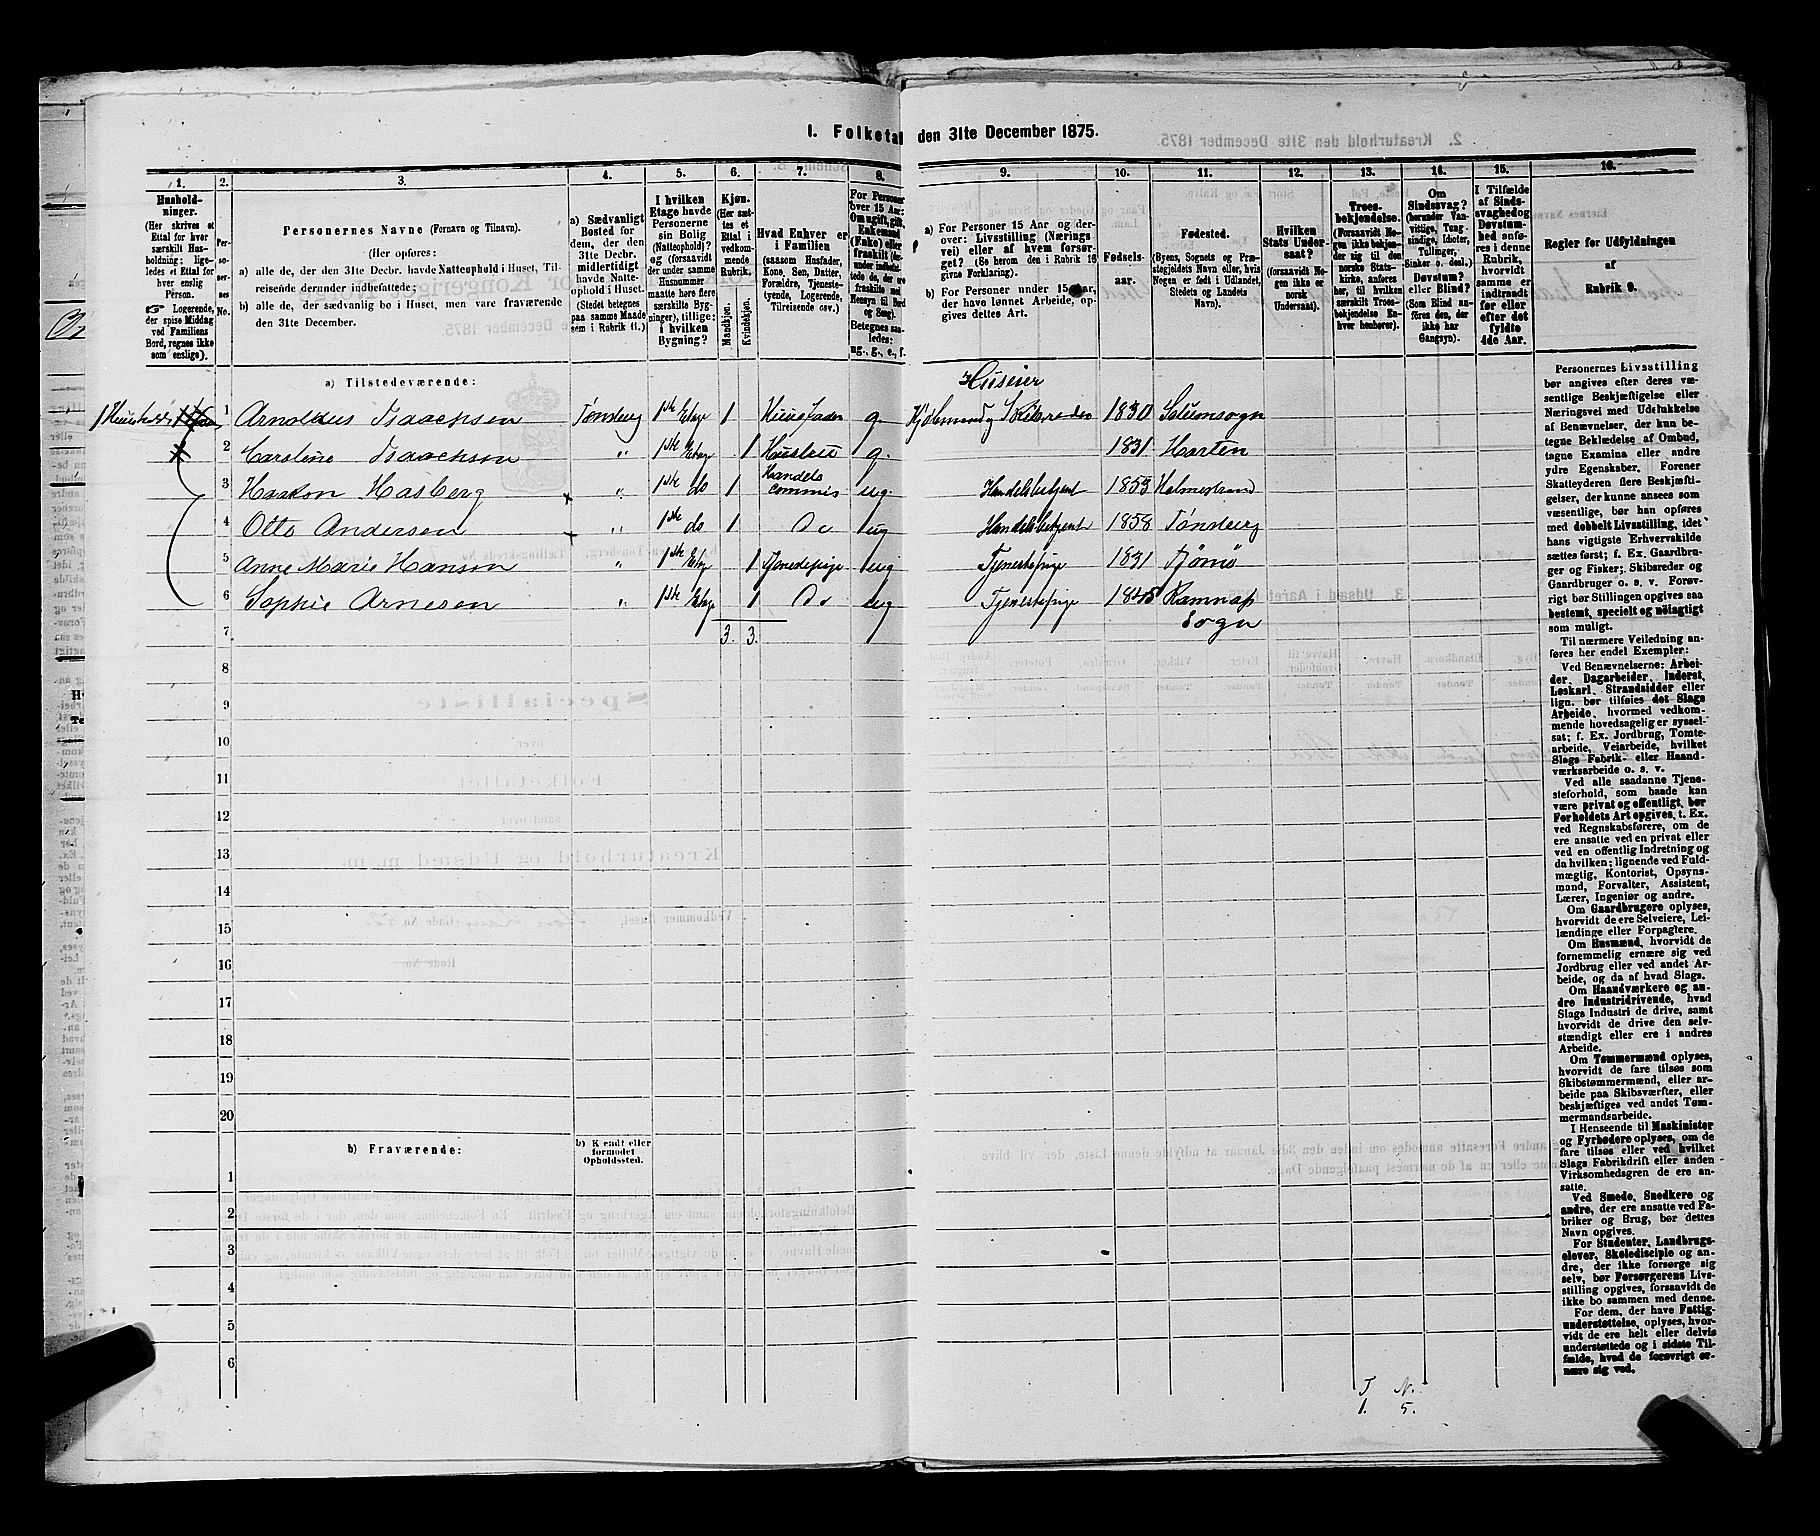 I. Folketal den 31te December 1875.
1. 2. 3. 4. 5. 6. 7. 8. 9. 10. 11. 12. 13. 14. 15. 16.
Husholdninger.
(Her skrives et
Ettal for hver
særskilt Hus-
holdning; lige-
ledes et Ettal for
hver enslig
Person.
Logerende,
der spise Middag
ved Familiens
Bord, regnes ikke
som enslige).
Personernes No.
Personernes Navne (Fornavn og Tilnavn).
(Her opføres:
a) alle de, der den 31te Decbr. havde Natteophold i Huset, Til-
reisende derunder indbefattede;
b) alle de, der sædvanlig bo i Huset, men vare fraværende
den 31te December.
a) Sædvanligt
Bosted for
dem, der den
31te Decbr.
midlertidigt
havde Natte-
ophold i Huset.
(Stedet betegnes
paa samme Maade
som i Rubrik 11.)
I hvilken
Etage havde
Personerne
sin Bolig
(Natteophold)?
og (forsaavidt
der under samme
Husnummer
maatte høre flere
særskilte Byg-
ninger), tillige:
i hvilken
Bygning?
Kjøn.
(Her sæt-
tes et
Ettal i
vedkom-
mende
Rubrik.
Mandkjøn.
Kvindekjøn.
Hvad Enhver er
i Familien
(saasom Husfader,
Kone, Søn, Datter,
Forældre, Tjeneste-
tyende, Logerende,
Tilreisende osv.)
For Personer
over 15 Aar:
Om ugift, gift,
Enkemand
(Enke) eller
fraskilt
Betegnes saa-
ledes:
ug., g., e., f.
a) For Personer 15 Aar og der-
over: Livsstilling (Nærings
vei) eller af hvem forsør-
get? (Se herom den i Rubrik 16
givne Forklaring).
b) For Personer under 15 Aar,
der have lønnet Arbeide, op-
gives dettes Art.
Fødsels-
aar.
Fødested.
(Byens, Sognets og Præ-
stegjeldets Navn eller, hvis
Nogen er født i Udlandet,
Stedets og Landets
Navn).
Hvilken
Stats Under-
saat?
(forsaavidt No-
gen ikke er
norsk
Undersaat).
Troes-
bekjendelse.
(Forsaavidt No-
gen ikke bekjen-
der sig til den
norske Stats-
kirke, anføres
her, til hvilken
særskilt Troes-
bekjendelse En-
hver henhører).
Om
Sindssvag?
(herunder Van-
vittige, Tung-
sindige, Idioter,
Tullinger,
Sinker o. desl.)
Døvstum?
eller Blind?
(Som Blind an-
føres den, der
ikke har
Gangsyn).
I Tilfælde
af Sinds-
svaghed og
Døvstum-
hed anføres
i denne
Rubrik,
hvorvidt
samme er
indtraadt
før eller
efter det
fyldte
4de Aar.
Regler for Udfyldningen
af
Rubrik 9.
a) Tilstedeværende:
Huseier
1 Arnoldus Isaachsen Tønsberg 1ste Etage 1 Huusfader g. Skibsreder 1830 Solumsogn
2 Caroline Isaachsen " 1ste Etage 1 Hustru g. 1831 Horten
3 Haakon Hasberg " 1ste do 1 Handels commis ug Handelsbetjent 1853 Holmestrand
4 Otto Andersen " 1ste do 1 Do ug Handelsbetjent 1858 Tønsberg
5 Anne Marie Hansen " 1ste Etage 1 Tjenestepige ug Tjenestepige 1831 Tjømø
6 Sophie Arnesen " 1ste Etage 1 Do ug Tjenestepige 1845 Ramnæs
Sogn
7 3. 3.
8
9
10
11
12
13
14
15
16
17
18
19
20
b) Fraværende: b) Kjendt eller
formodet
Opholdssted.
1
2
3
4
5
6
Personernes Livsstilling
bør angives efter deres væ-
sentlige Beskjæftigelse eller
Næringsvei med Udelukkelse
af Benævnelser, der kun be-
tegne Beklædelse af Ombud,
tagne Examina eller andre
ydre Egenskaber. Forener
Skatteyderen flere Beskjæfti-
gelser, der kunne ansees som
væsentlige, bør han opføres
med dobbelt Livsstilling, idet
hans vigtigste Erhvervskilde
sættes først; f. Ex. Gaardbru-
ger og Fisker; Skibsreder og
Gaardbruger o. s. v. Forøv-
rigt bør Stillingen opgives saa
bestemt, specielt og nøiagtigt
som muligt.
Til nærmere Veiledning an-
føres her endel Exempler:
Ved Benævnelserne: Arbei-
der, Dagarbeider, Inderst,
Løskarl, Strandsidder eller
lign. bør tilføies det Slags
Arbeide, hvormed vedkom-
mende hovedsagelig er syssel-
sat; f. Ex. Jordbrug, Tomte-
arbeide, Veiarbeide, hvilket
Slags Fabrik- eller Haand-
værksarbeide o. s. v.
Ved alle saadanne Tjene-
steforhold, som baade kan
være privat og offentligt, bør
Forholdets Art opgives, t. Ex.
ved Regnskabsførere, om de
ere ansatte ved en privat eller
ved en offentlig Indretning og
da hvilken; lignende ved Fuld-
mægtig, Kontorist, Opsyns-
mand, Forvalter, Assistent,
Lærer, Ingeniør og andre.
Om Gaardbrugere oplyses,
hvorvidt de ere Selveiere, Lei-
lændinge eller Forpagtere.
Om Husmænd, hvorvidt de
fornemmelig ernære sig ved
Jordbrug eller ved andet Ar-
beide, og da af hvad Slags.
Om Haandværkere og an-
dre Industridrivende, hvad
Slags Industri de drive, samt
hvorvidt de drive den selv-
stændigt eller ere i andres
Arbeide.
Om Tømmermænd oplyses,
hvorvidt de fare tilsøs som
Skibstømmermænd, eller ar-
beide paa Skibsværfter, eller
beskjæftiges ved andet Tøm-
mermandsarbeide.
I Henseende til Maskinister
og Fyrbødere oplyses, om de
fare tilsøs eller ved hvilket
Slags Fabrikdrift eller anden
Virksomhedsgren de ere an-
satte.
Ved Smede, Snedkere og
andre, der ere ansatte ved Fa-
briker og Brug, bør dettes
Navn opgives.
For Studenter, Landbrugs-
elever, Skoledisciple og an-
dre, der ikke forsørge sig
selv, bør Forsørgerens Livs-
stilling opgives, forsaavidt de
ikke bo sammen med denne.
For dem, der have Fattig-
understøttelse, oplyses, hvor-
vidt de ere helt eller delvis
understøttede og i sidste Til-
fælde, hvad de forøvrigt er-
nære sig ved.
T N.
1. 5.